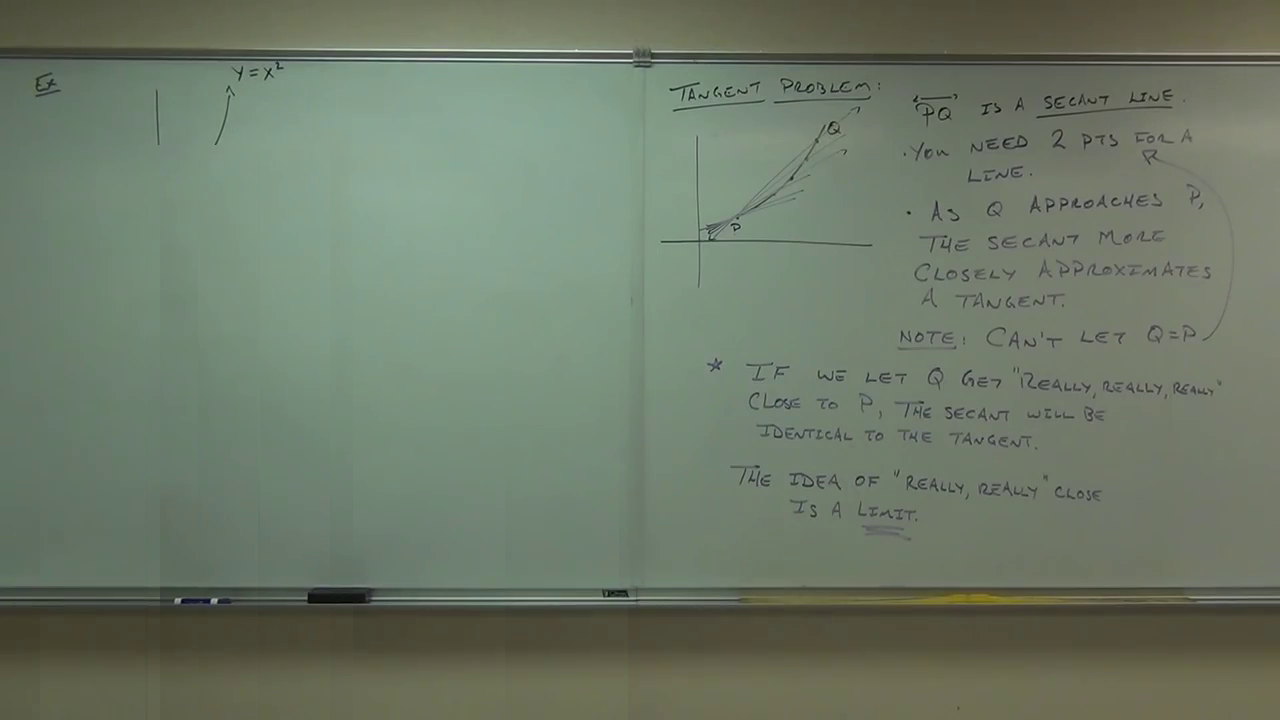 Ex
y = x²
TANGENT PROBLEM:
Q
P
PQ IS A SECANT LINE.
• YOU NEED 2 PTS FOR A
LINE.
• AS Q APPROACHES P,
THE SECANT MORE
CLOSELY APPROXIMATES
A TANGENT.
NOTE: CAN'T LET Q=P
* IF WE LET Q GET "REALLY, REALLY, REALLY"
CLOSE TO P, THE SECANT WILL BE
IDENTICAL TO THE TANGENT.
THE IDEA OF "REALLY, REALLY" CLOSE
IS A LIMIT.